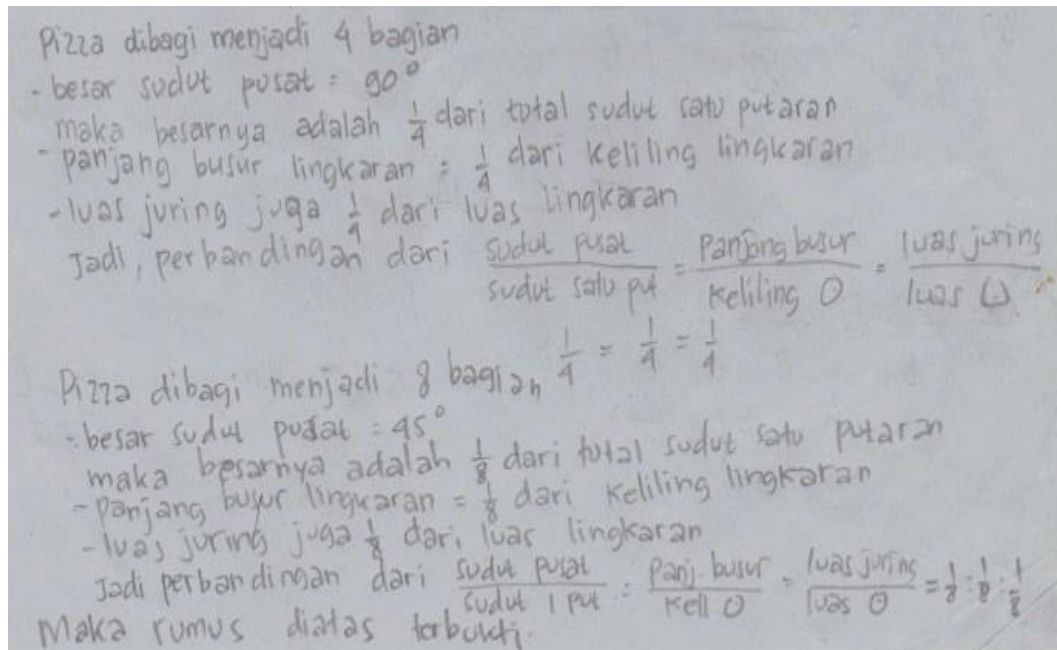 Pizza dibagi menjadi 4 bagian
- besar sudut pusat = 90°
maka besarnya adalah 1/4 dari total sudut satu putaran
- panjang busur lingkaran = 1/4 dari keliling lingkaran
- luas juring juga 1/4 dari luas lingkaran
Jadi, perbandingan dari sudut pusat/sudut satu put = Panjang busur/Keliling O = luas juring/luas O
1/4 = 1/4 = 1/4
Pizza dibagi menjadi 8 bagian
- besar sudut pusat = 45°
maka besarnya adalah 1/8 dari total sudut satu putaran
- Panjang busur lingkaran = 1/8 dari keliling lingkaran
- luas juring juga 1/8 dari luas lingkaran
Jadi perbandingan dari sudut pusat/sudut 1 put = Panj. busur/Kell O = luas juring/luas O = 1/8 : 1/8 : 1/8
Maka rumus diatas terbukti.